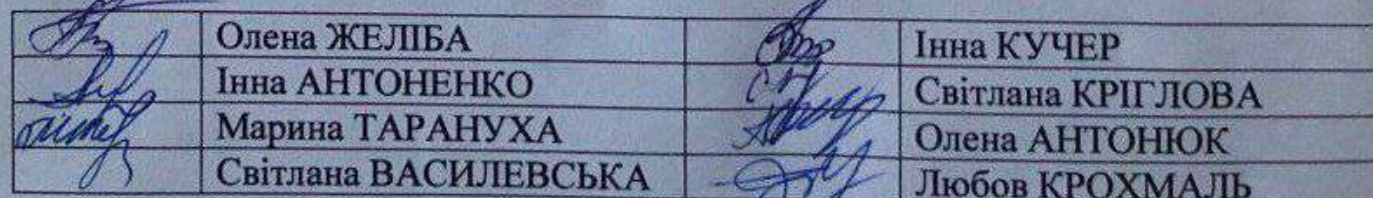 Олена ЖЕЛІБА Інна КУЧЕР
Інна АНТОНЕНКО Світлана КРІГЛОВА
Марина ТАРАНУХА Олена АНТОНЮК
Світлана ВАСИЛЕВСЬКА Любов КРОХМАЛЬ